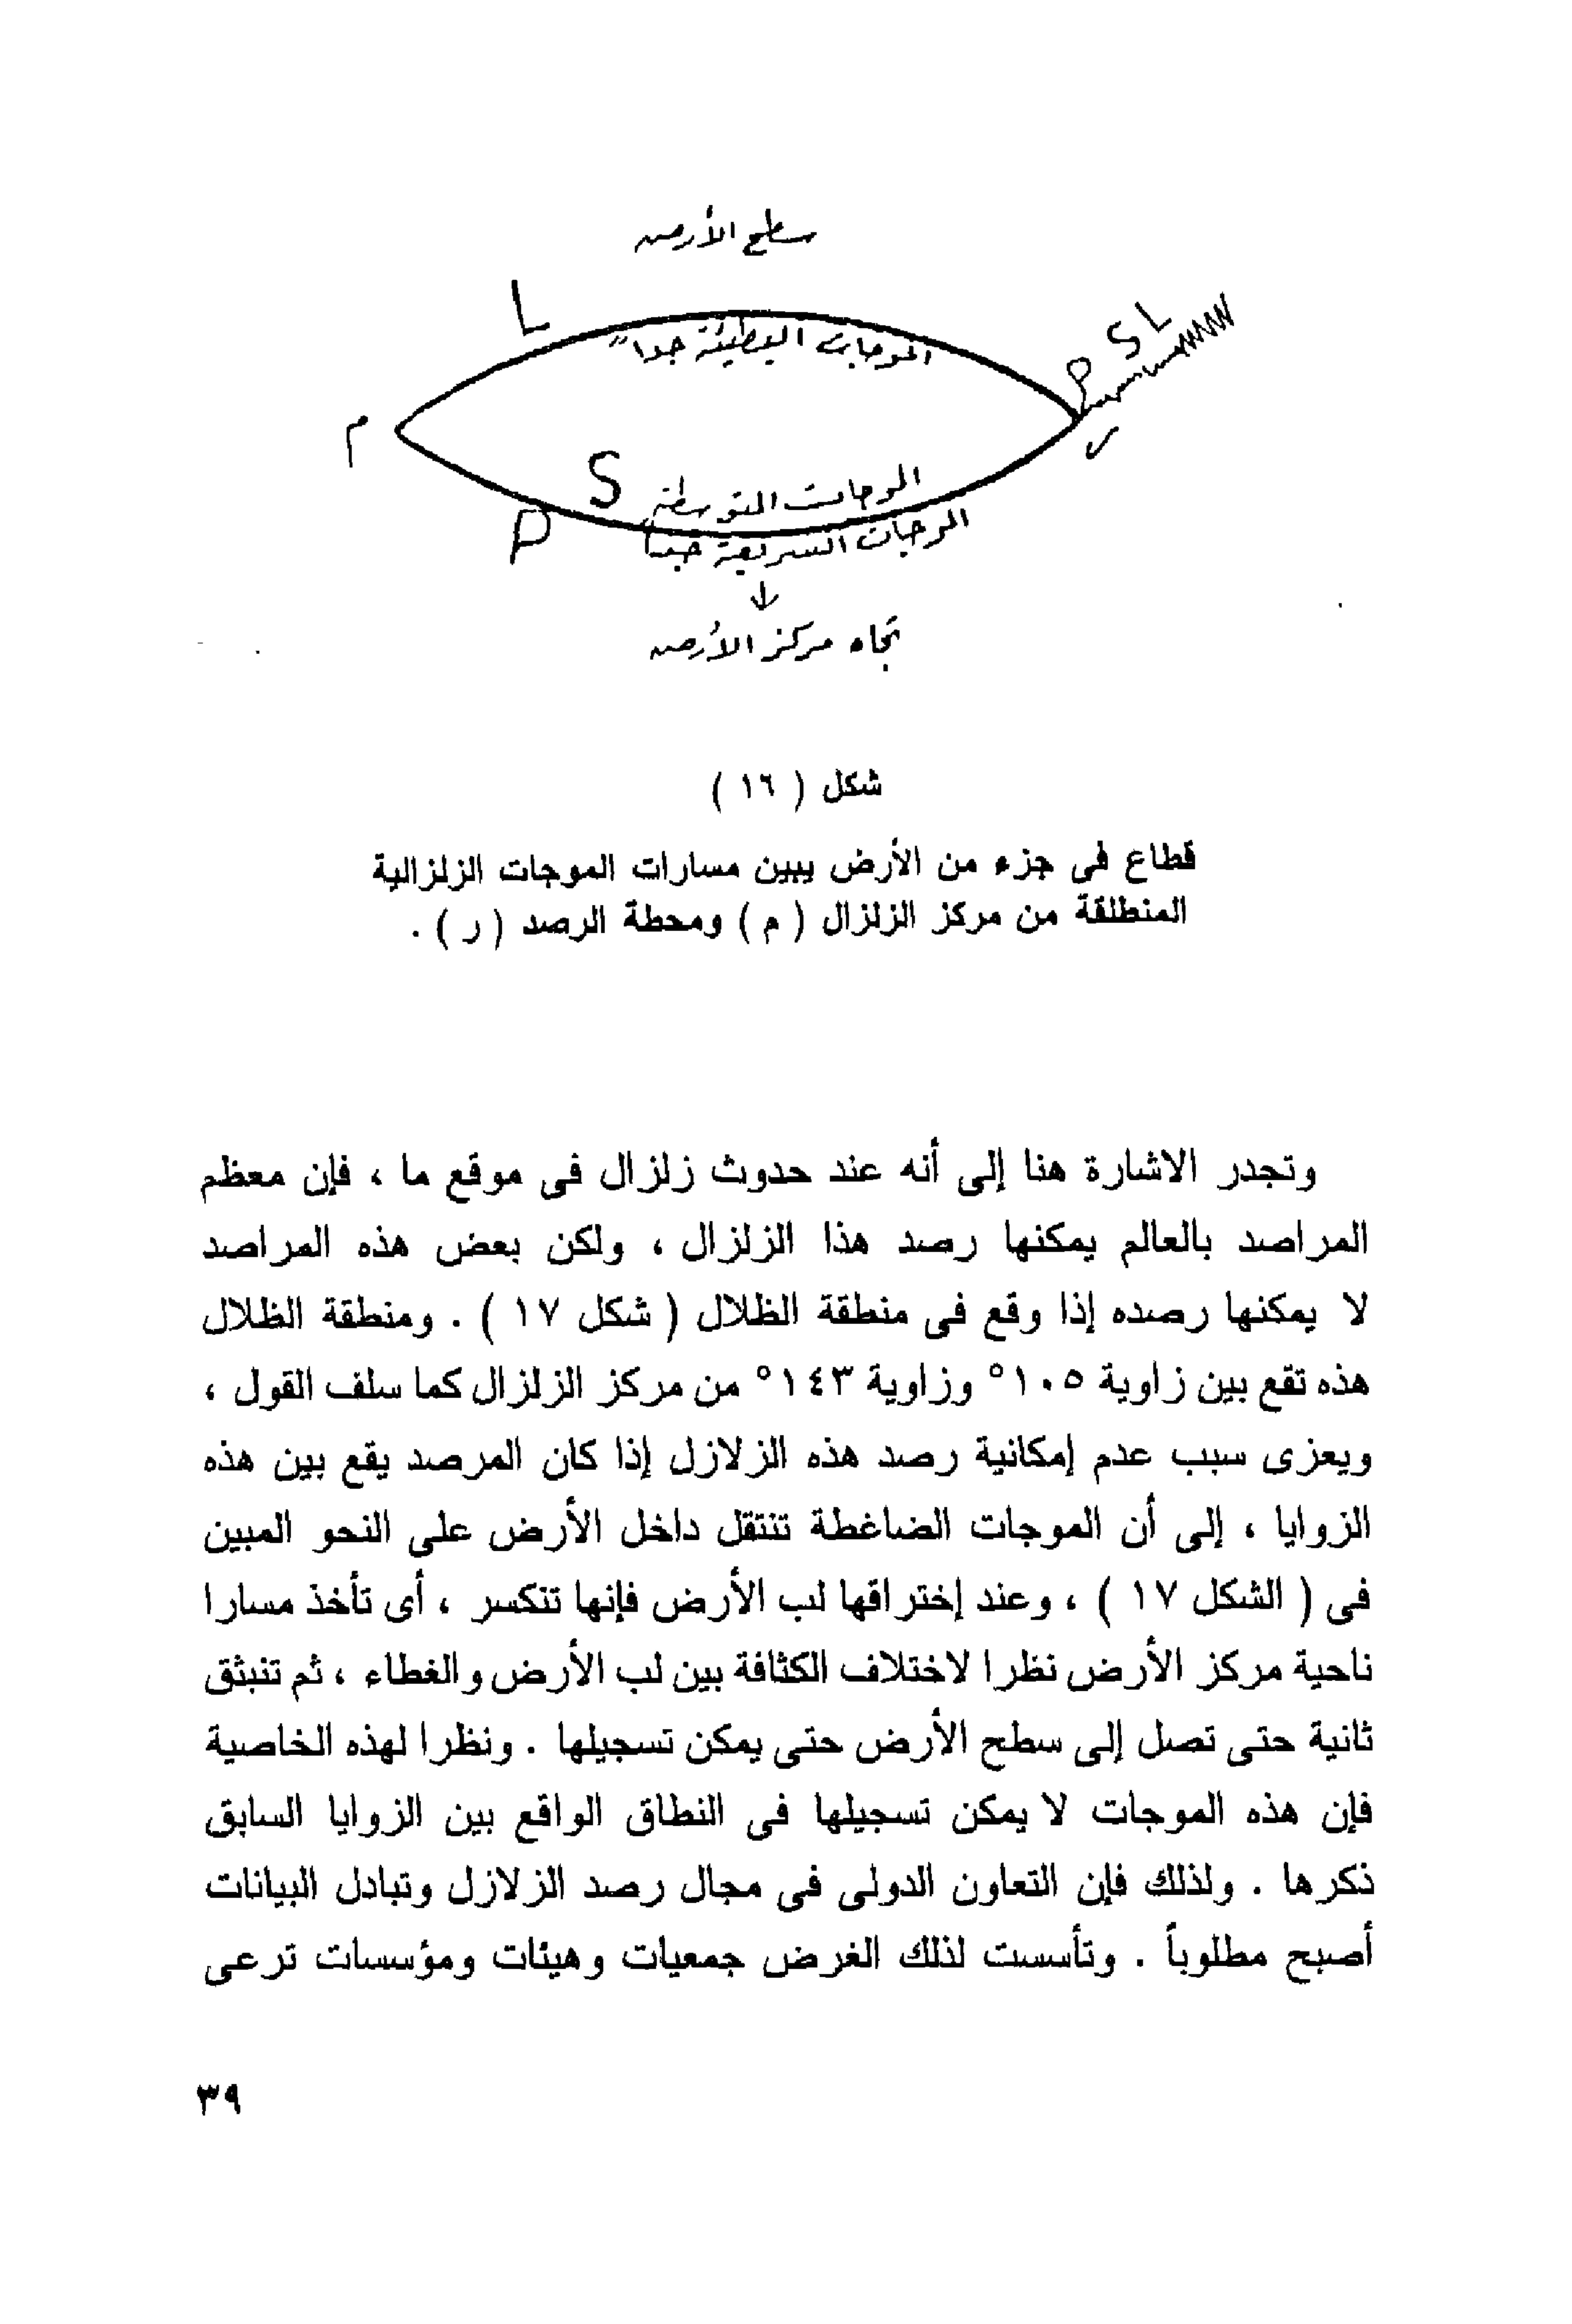 سطح الأرض
L
الموجات البطيئة جداً
P S L
م
ر
S
الموجات المتوسطة
P
الموجات السريعة جداً
↓
تجاه مركز الأرض
شكل ( ١٦ )
قطاع فى جزء من الأرض يبين مسارات الموجات الزلزالية
المنطلقة من مركز الزلزال ( م ) ومحطة الرصد ( ر ) .
وتجدر الاشارة هنا إلى أنه عند حدوث زلزال فى موقع ما ، فإن معظم
المراصد بالعالم يمكنها رصد هذا الزلزال ، ولكن بعض هذه المراصد
لا يمكنها رصده إذا وقع فى منطقة الظلال ( شكل ١٧ ) . ومنطقة الظلال
هذه تقع بين زاوية ١٠٥° وزاوية ١٤٣° من مركز الزلزال كما سلف القول ،
ويعزى سبب عدم إمكانية رصد هذه الزلازل إذا كان المرصد يقع بين هذه
الزوايا ، إلى أن الموجات الضاغطة تنتقل داخل الأرض على النحو المبين
فى ( الشكل ١٧ ) ، وعند إختراقها لب الأرض فإنها تنكسر ، أى تأخذ مسارا
ناحية مركز الأرض نظرا لاختلاف الكثافة بين لب الأرض والغطاء ، ثم تنبثق
ثانية حتى تصل إلى سطح الأرض حتى يمكن تسجيلها . ونظرا لهذه الخاصية
فإن هذه الموجات لا يمكن تسجيلها فى النطاق الواقع بين الزوايا السابق
ذكرها . ولذلك فإن التعاون الدولى فى مجال رصد الزلازل وتبادل البيانات
أصبح مطلوباً . وتأسست لذلك الغرض جمعيات وهيئات ومؤسسات ترعى
٣٩